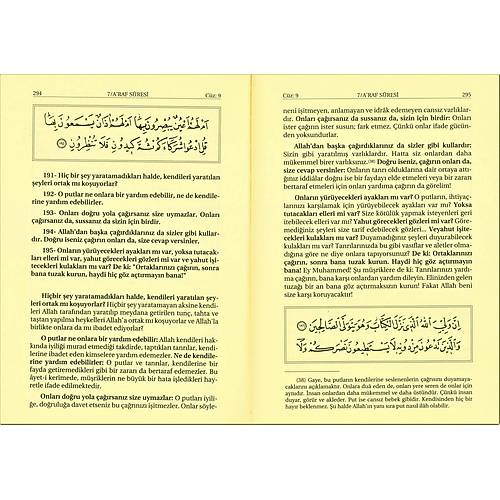 294 7/A'RAF SÛRESİ Cüz: 9
اَمْ لَهُمْ اَعْيُنٌ يُبْصِرُونَ بِهَا اَمْ لَهُمْ اٰذَانٌ يَسْمَعُونَ بِهَا
قُلِ ادْعُوا شُرَكَاءَكُمْ ثُمَّ كِيدُونِ فَلَا تُنْظِرُونِ
191- Hiç bir şey yaratamadıkları halde, kendileri yaratılan
şeyleri ortak mı koşuyorlar?
192- O putlar ne onlara bir yardım edebilir, ne de kendile-
rine yardım edebilirler.
193- Onları doğru yola çağırsanız size uymazlar. Onları
çağırsanız da sussanız da sizin için birdir.
194- Allah'dan başka çağırdıklarınız da sizler gibi kullar-
dır. Doğru iseniz çağırın onları da, size cevap versinler.
195- Onların yürüyecekleri ayakları mı var, yoksa tutacak-
ları elleri mi var, yahut görecekleri gözleri mi var ve yahut işi-
tecekleri kulakları mı var? De ki: "Ortaklarınızı çağırın, sonra
bana tuzak kurun, haydi hiç göz açtırmayın bana!"
Hiçbir şey yaratamadıkları halde, kendileri yaratılan şey-
leri ortak mı koşuyorlar? Hiçbir şey yaratamadıkları halde, kendi-
leri Allah tarafından yaratılıp meydana getirilen tunç, tahta ve
taştan yapılma heykelleri Allah'a ortak mı koşuyorlar ve Allah'la
birlikte onlara da mı ibadet ediyorlar?
O putlar ne onlara bir yardım edebilir. Allah kendileri hak-
kında iyiliği murad etmediği takdirde, taptıkları tanrılar, kendi-
lerine ibadet eden kimselere yardım edemezler. Ne de kendile-
rine yardım edebilirler: O putlar ve tanrılar, kendilerine bir
fayda getiremedikleri gibi bir zararı da bertaraf edemezler. Bu
âyet-i kerimede, müşriklerin ne büyük bir hata işledikleri hayret-
retle ifade edilmektedir.
Onları doğru yola çağırsanız size uymazlar: O putları iyili-
ğe, doğruluğa davet etseniz bu çağrınızı işitmezler. Onlar söyle-
Cüz: 9 7/A'RAF SÛRESİ 295
neni işitmeyen, anlamayan ve idrâk edemeyen cansız varlıklar-
dır. Onları çağırsanız da sussanız da, sizin için birdir: Onları
ister çağırın ister susun; fark etmez. Çünkü onlar ifade gücün-
den yoksundurlar.
Allah'dan başka çağırdıklarınız da sizler gibi kullardır:
Sizin gibi yaratılmış varlıklardır. Hatta siz onlardan daha
mükemmel birer varlıksınız.(38) Doğru iseniz, çağırın onları da,
size cevap versinler: Onların tanrı olduklarına dair ortaya attı-
ğınız iddialar doğru ise bir faydayı elde etmeleri veya bir zararı
bertaraf etmeleri için onları yardıma çağırın da görelim!
Onların yürüyecekleri ayakları mı var? O putların, ihtiyaç-
larınızı karşılamak için yürüyebilecek ayakları mı var? Yoksa
tutacakları elleri mi var? Size kötülük yapmak isteyenleri geri
itebilecek elleri mi var? Yahut görecekleri gözleri mi var? Gör-
mediğiniz şeyleri size tarif edebilecek gözleri... Veyahut işite-
cekleri kulakları mı var? Duyamadığınız şeyleri duyabilecekleri
kulakları mı var? Tanrılarınızda bu gibi vasıflar ve aletler olma-
dığına göre ne diye onlara tapıyorsunuz? De ki: Ortaklarınızı
çağırın, sonra bana tuzak kurun. Haydi hiç göz açtırmayın
bana! Ey Muhammed! Şu müşriklere de ki: Tanrılarınızı yardı-
mınıza çağırın, onlardan yardım isteyin. Elinizden gelen tuza-
ğınızı bir an bana göz açtırmadan kurun! Fakat Allah beni
size karşı koruyacaktır!
اِنَّ وَلِيِّيَ اللّٰهُ الَّذِي نَزَّلَ الْكِتَابَ وَهُوَ يَتَوَلَّى الصَّالِحِينَ
وَالَّذِينَ تَدْعُونَ مِنْ دُونِهِ لَا يَسْتَطِيعُونَ نَصْرَكُمْ وَلَا
(38) Gaye, bu putların kendilerine seslenenlerin çağrısını duyamaya-
caklarını açıklamaktır. Onlara dua eden de, onları yere seren de onlar için
aynıdır. İnsan ise daha mükemmel ve daha üstündür. Çünkü insan
duyar, görür ve akleder. Put ise cansız bebek gibidir. Kendisinden hiç bir
hayır beklenmez. Şu halde Allah'ın yanı sıra put nasıl ilâh olabilir.